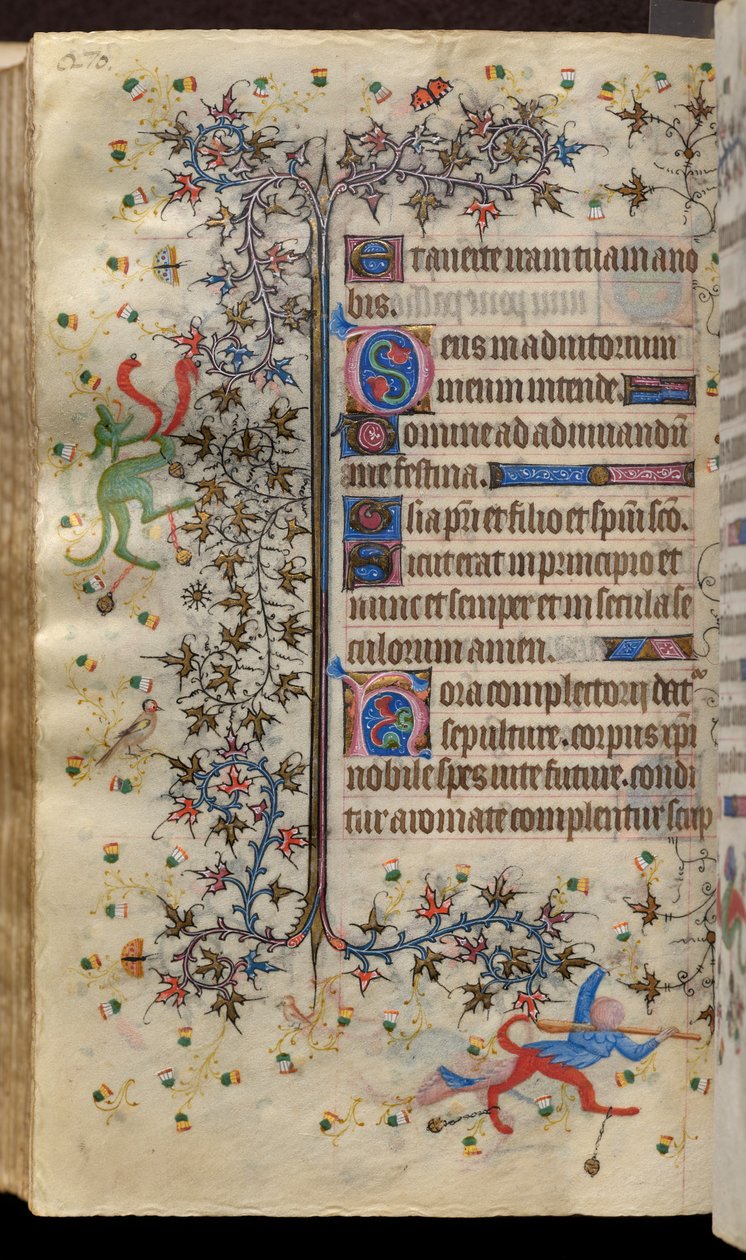 270.
Et auerte iram tuam a no
bis.
Deus in adiutorium
meum intende.
Domine ad adiuuandū
me festina.
Glia pr̄i et filio et sp̄ui sc̄o.
Sicut erat in principio et
nunc et semper et in secula se
culorum amen.
Hora completorij dat᷑
sepulture. corpus xp̄i
nobile spes uite future. condi
tur aromate complentur scrip